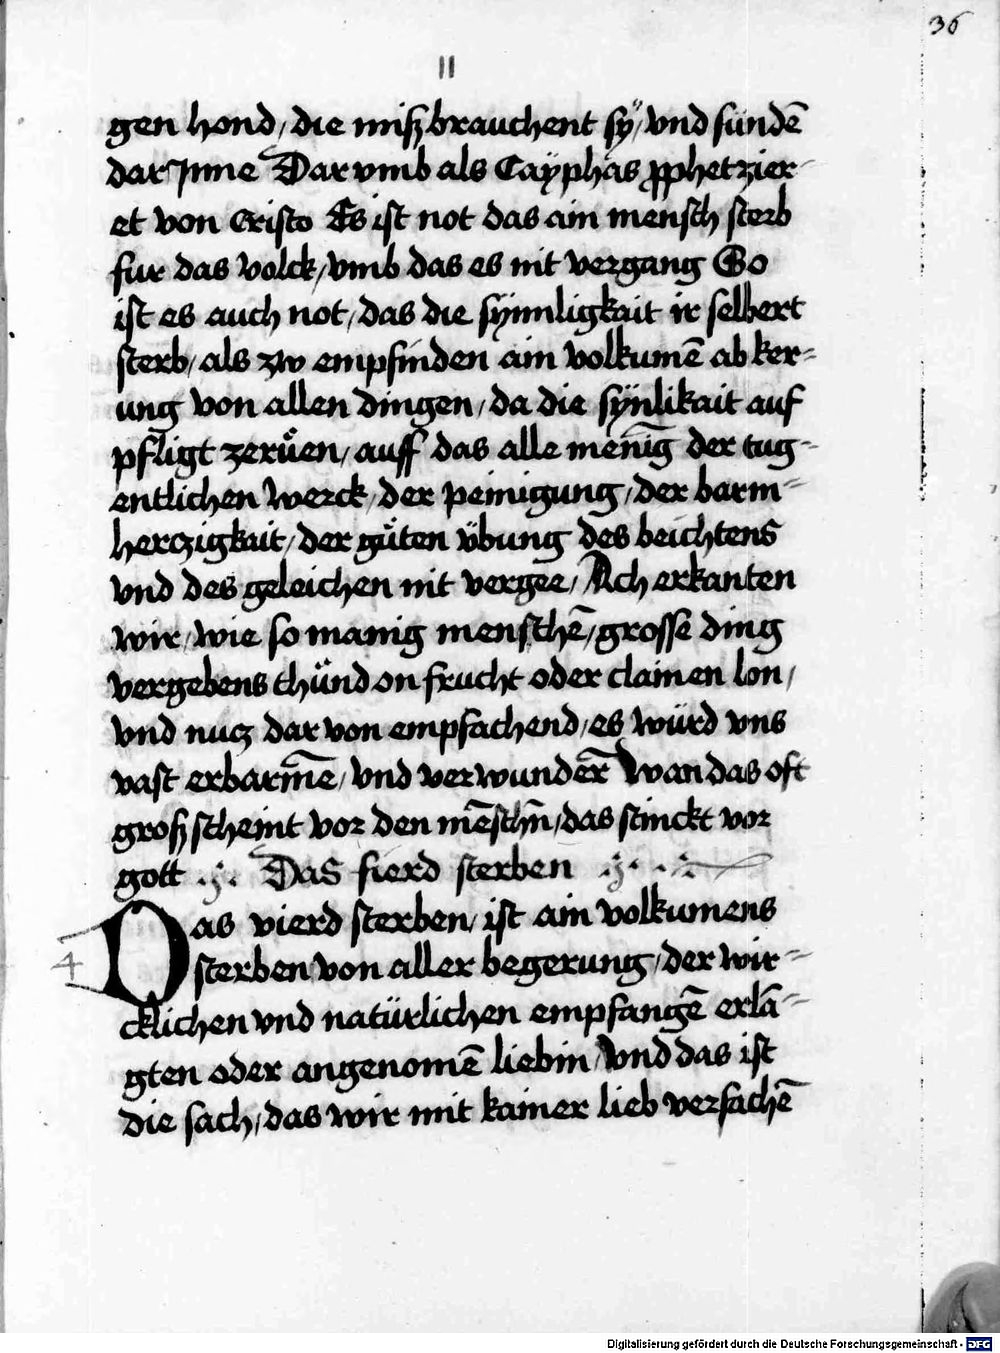 36
11
gen hond / die mißbrauchent sÿ / vnd sünden̄
dar Jnne Darvmb als Caÿphas ꝓphetzier-
et von Cristo Es ist not das ain mensch sterb
fur das volck / vmb das es nit vergang So
ist es auch not / das die sÿnnligkait ir selbert
sterb / als zw empfinden ain volkumē ab ker-
ung von allen dingen / da die sÿnlikait auf
pfligt zerůen / auff das alle menīg der tug-
entlichen werck / der peinigung / der barm-
herczigkait / der gůten übung des beichtens
vnd des geleichen nit vergee / Ach erkanten
wir / wie so manig menschē / grosse ding
vergebens thůnd on frucht oder clainen lon /
vnd nucz dar von empfachend / es würd vns
vast erbarm̄e / vnd verwundern̄ Wan das oft
groß scheint vor den mēschn̄ / das stinckt vor
gott Das fierd sterben
4
Das vierd sterben / ist ain volkumens
sterben von aller begerung / der wir-
cklichen vnd natürlichen empfangē erlā-
gten oder angenomē liebin / Vnd das ist
die sach / das wir mit kainer lieb verfachē
Digitalisierung gefördert durch die Deutsche Forschungsgemeinschaft - DFG